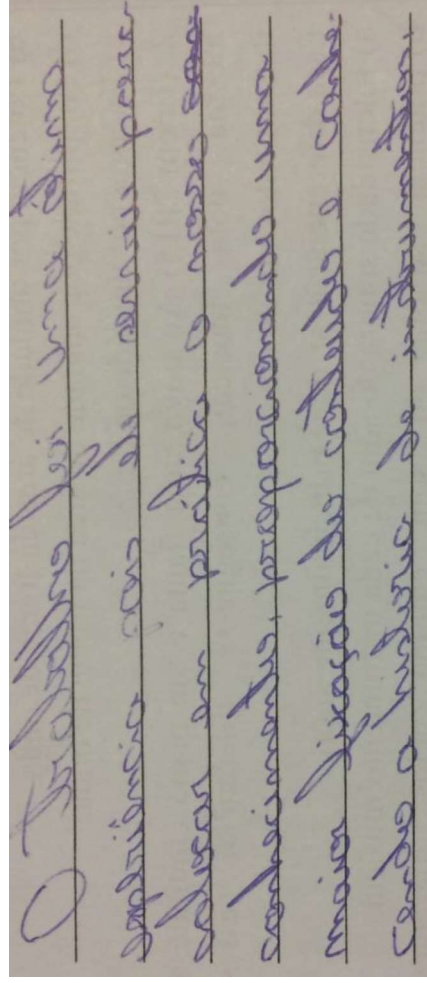 O trabalho foi uma ótima
experiência pois ele serviu para
colocar em prática o nosso
conhecimento, proporcionando uma
maior fixação do conteúdo e conhe-
cendo a história do instrumentos.